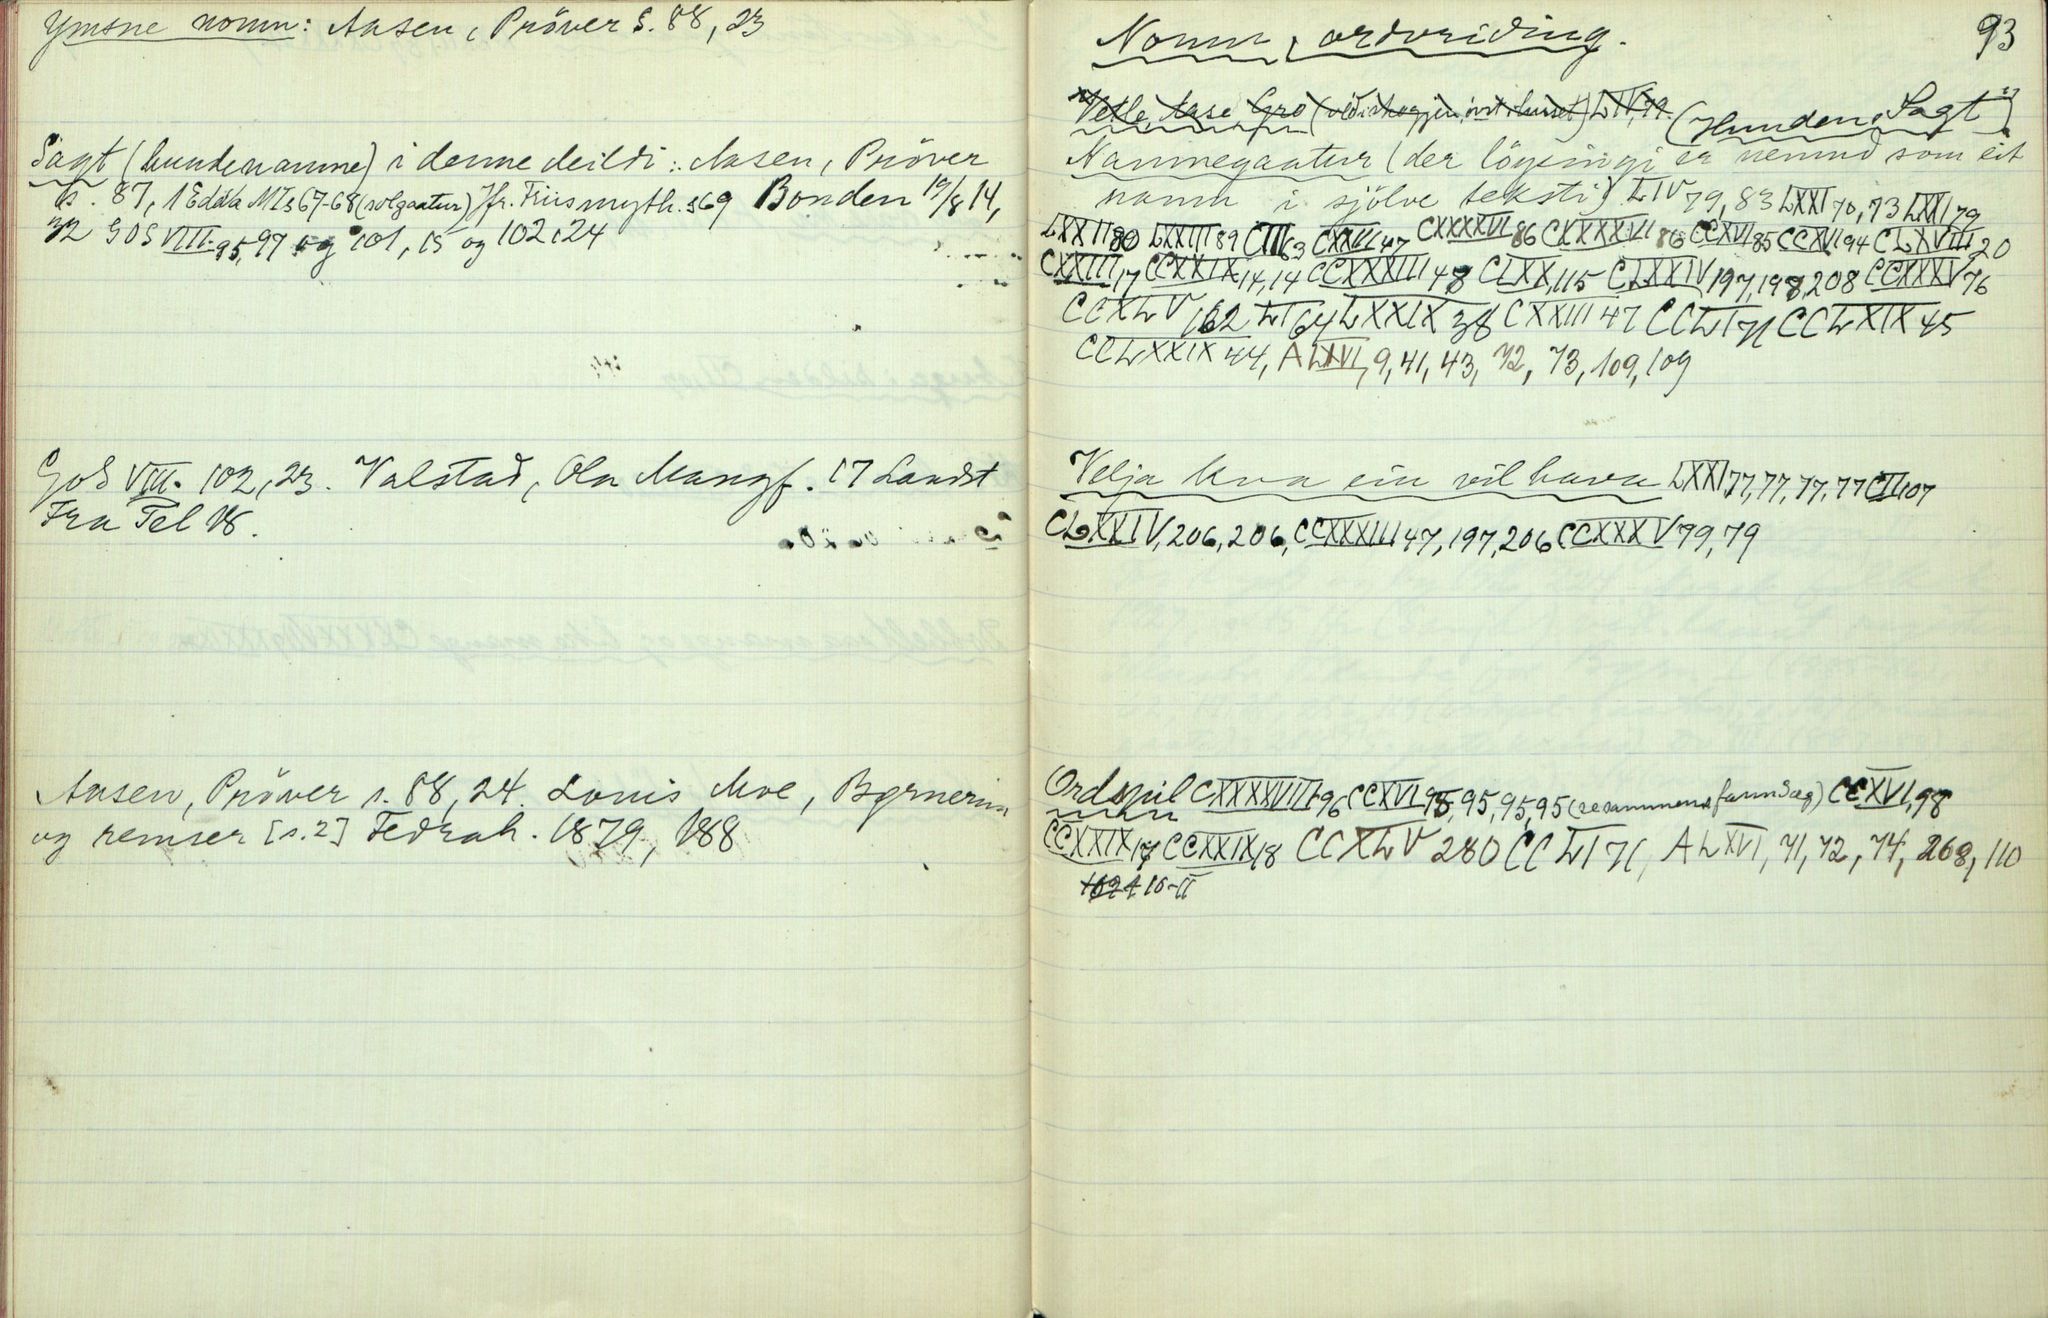 Ymsne nomn: Aasen, Pröver s. 88, 23
Sagt (hundenamne) i denne deildi: Aasen, Pröver
s. 87, 1 Edda M I s 67-68 (solgaatur) Jfr. Friis myth. s 69 Bonden 19/8 14,
GOS VIII. 95, 97 og 101, 15 og 102, 24
GoS VIII. 102, 23. Valstad, Ola Mangf. 17 Landst
Fra Tel 18.
Aasen, Pröver s. 88, 24. Louis Moe, Børnerim
og remser [s. 2] Fedrah. 1879, 188
93
Nomn, ordvriding.
Vetle Aase Gro LIV, 79. (Hunden "Sagt")
Namnegaatur (der löysingi er nemnd som eit
namn i sjölve teksti) LIV 79, 83 LXXI 70, 73 LXXI 79
LXXII 80 LXXIII 89 CIII 63 CXXIII 47 CXXXXVI 86 CXXXXVI 86 CCXVI 85 CCXVI 94 CLXVIII 20
CXXIII 17 CCXXIX 14, 14 CCXXXIII 48 CLXX, 115 CLXXIV 197, 198, 208 CCXXXV 76
CCXLV 162 LI 64 LXXIX 38 CXXIII 47 CCLI 71 CCLXIX 45
CCLXXIX 44, A LXVI, 9, 41, 43, 72, 73, 109, 109
Velja kva ein vil hava LXXI, 77, 77, 77, 77 CII 107
CLXXIV, 206, 206, CCXXXIII 47, 197, 206 CCXXXV 79, 79
Ordspil CXXXXVIII 96 CCXVI 95, 95, 95, 95 CCXVI, 98
CCXXIX 17 CCXXIX 18 CCXLV 280 CCLI 71, A LXVI, 71, 72, 74, 268, 110
16-II